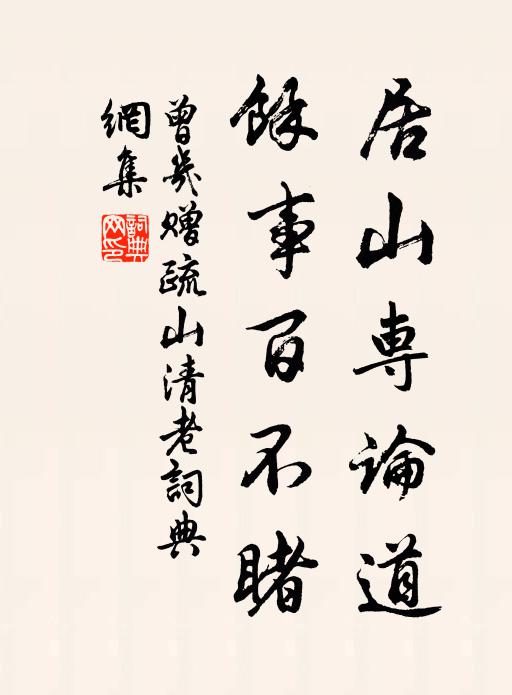 居山專論道
餘事百不睹
曾幾贈疏山清老詞典
網集
詞典
網印